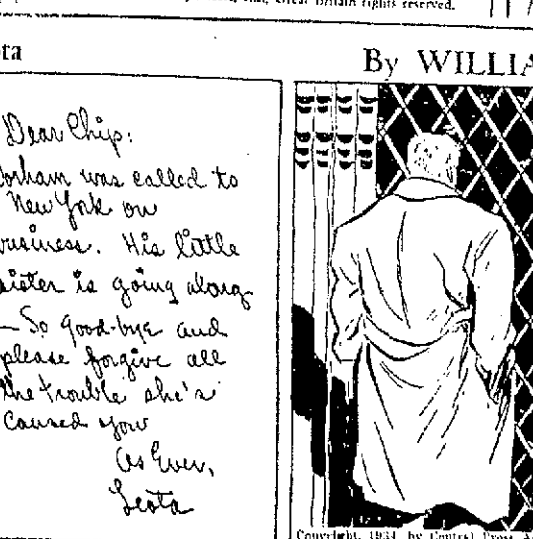 Great Britain rights reserved.
ota
By WILLIA
Dear Chip:
orham was called to
New York on
business. His little
sister is going along
— So good-bye and
please forgive all
the trouble she's
caused you
As Ever,
Leota
Copyright, 1934, by Central Press